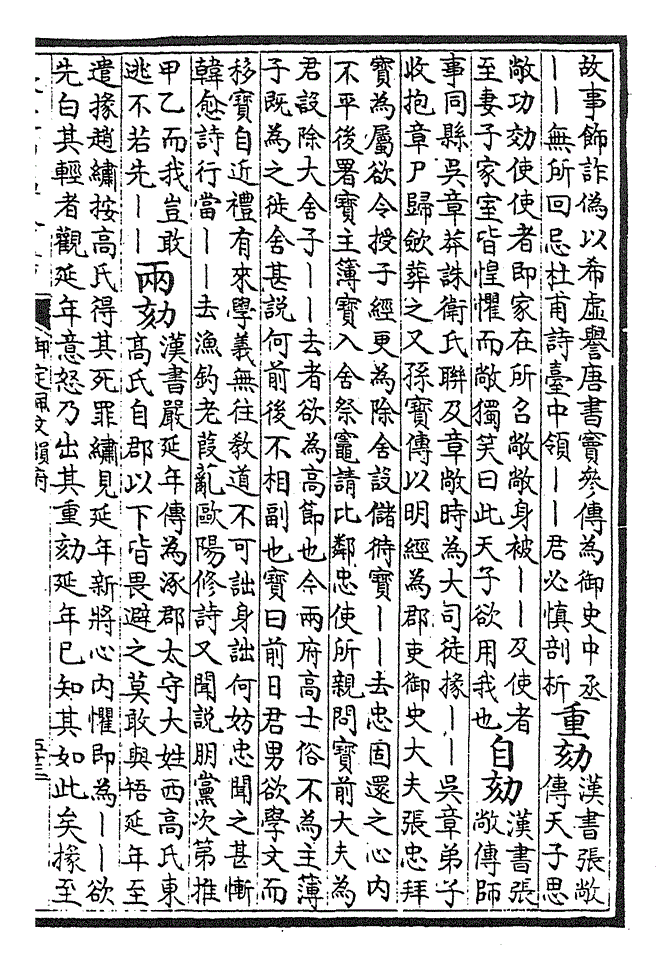 故事飾詐偽以希虛譽唐書竇參傳為御史中丞
丨丨無所回忌杜甫詩臺中領丨丨君必慎剖析
重劾
漢書張敞
傳天子思
敞功効使使者即家在所召敞敞身被丨丨及使者
至妻子家室皆惶懼而敞獨笑曰此天子欲用我也
自劾
漢書張
敞傳師
事同縣吳章莽誅衛氏聯及章敞時為大司徒掾丨丨吳章弟子
收抱章尸歸斂葬之又孫寶傳以明經為郡吏御史大夫張忠拜
寶為屬欲令授子經更為除舍設儲偫寶丨丨去忠固還之心内
不平後署寶主簿寶入舍祭竈請比鄰忠使所親問寶前大夫為
君設除大舍子丨丨去者欲為高節也今兩府高士俗不為主簿
子既為之徙舍甚説何前後不相副也寶曰前日君男欲學文而
移寶自近禮有來學義無往教道不可詘身詘何妨忠聞之甚慚
韓愈詩行當丨丨去漁釣老葭薍歐陽修詩又聞説朋黨次第推
甲乙而我豈敢
逃不若先丨丨
兩劾
漢書嚴延年傳為涿郡太守大姓西高氏東
高氏自郡以下皆畏避之莫敢與牾延年至
遣掾趙繡按高氏得其死罪繡見延年新將心内懼即為丨丨欲
先白其輕者觀延年意怒乃出其重劾延年已知其如此矣掾至
御定佩文韻府